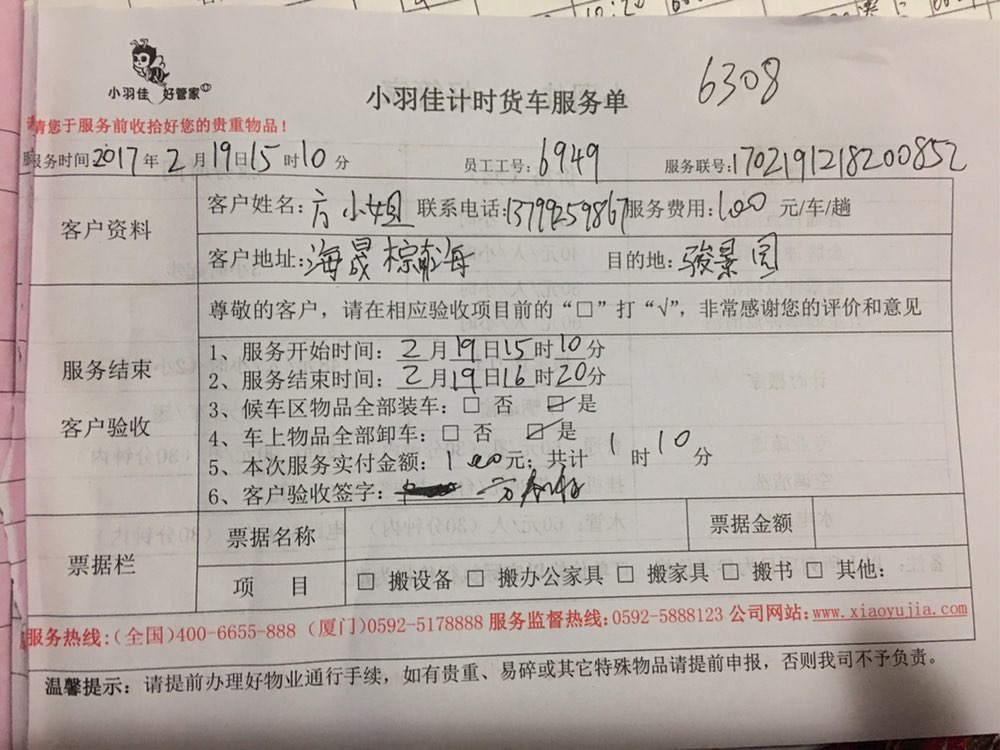 小羽佳 好管家
小羽佳计时货车服务单 6308
请您于服务前收拾好您的贵重物品！
服务时间2017年2月19日15时10分 员工工号:6949 服务联号:1702191218200852
客户资料
客户姓名:方小姐 联系电话:13799259867 服务费用:100元/车/趟
客户地址:海晟棕榈海 目的地:骏景园
服务结束
客户验收
尊敬的客户，请在相应验收项目前的“□”打“√”，非常感谢您的评价和意见
1、服务开始时间：2月19日15时10分
2、服务结束时间：2月19日16时20分
3、候车区物品全部装车：□ 否 ☑ 是
4、车上物品全部卸车：□ 否 ☑ 是
5、本次服务实付金额：100元；共计 1时10分
6、客户验收签字：方
票据栏
票据名称 票据金额
项 目 □ 搬设备 □ 搬办公家具 □ 搬家具 □ 搬书 □ 其他：
服务热线:(全国)400-6655-888 (厦门)0592-5178888 服务监督热线:0592-5888123 公司网站:www.xiaoyujia.com
温馨提示：请提前办理好物业通行手续，如有贵重、易碎或其它特殊物品请提前申报，否则我司不予负责。